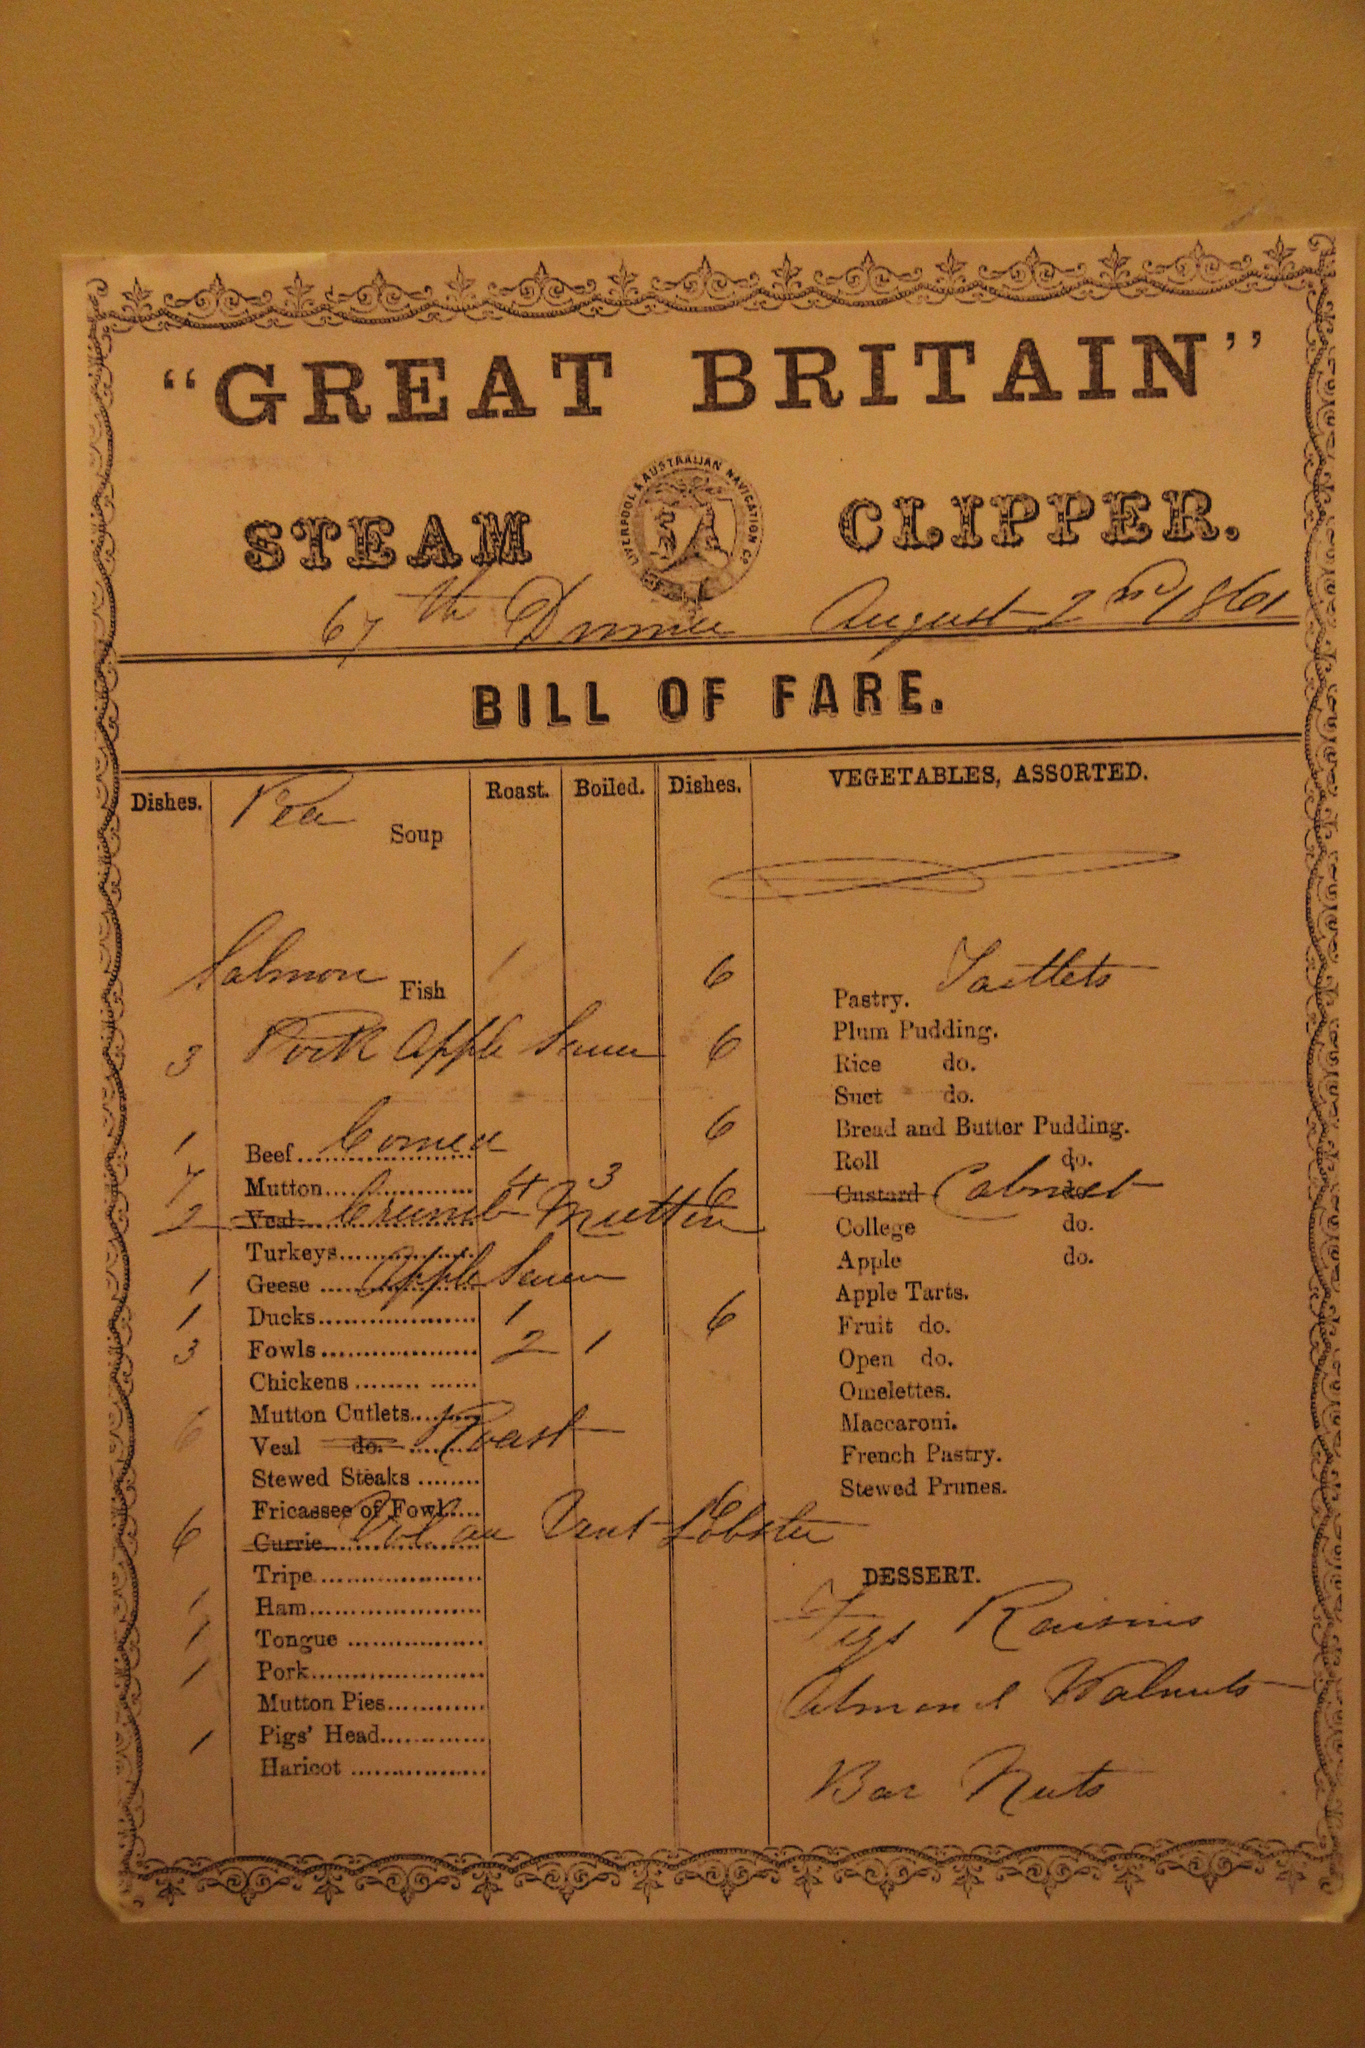 "GREAT BRITAIN"
STEAM CLIPPER.
LIVERPOOL & AUSTRALIAN NAVIGATION CO
67th Dinner August 2nd 1861
BILL OF FARE.
Dishes. Roast. Boiled. Dishes. VEGETABLES, ASSORTED.
Pea Soup
Salmon Fish 1 6 Pastry. Tartlets
Plum Pudding.
3 Pork Apple Sauce 6 Rice do.
Suet do.
1 Beef Corned 6 Bread and Butter Pudding.
7 Mutton 4 3 Roll do.
2 Veal Crumb Mutton 6 Custard Cabinet do.
Turkeys College do.
1 Geese Apple Sauce Apple do.
Apple Tarts.
1 Ducks 1 6 Fruit do.
3 Fowls 2 1 Open do.
Chickens Omelettes.
Mutton Cutlets Maccaroni.
6 Veal do. Roast French Pastry.
Stewed Steaks Stewed Prunes.
Fricassee of Fowl 6
6 Currie Vol au Vent Lobster
Tripe DESSERT.
1 Ham Figs Raisins
1 Tongue
1 Pork Almond Walnuts
Mutton Pies
1 Pigs' Head
Haricot Bar Nuts